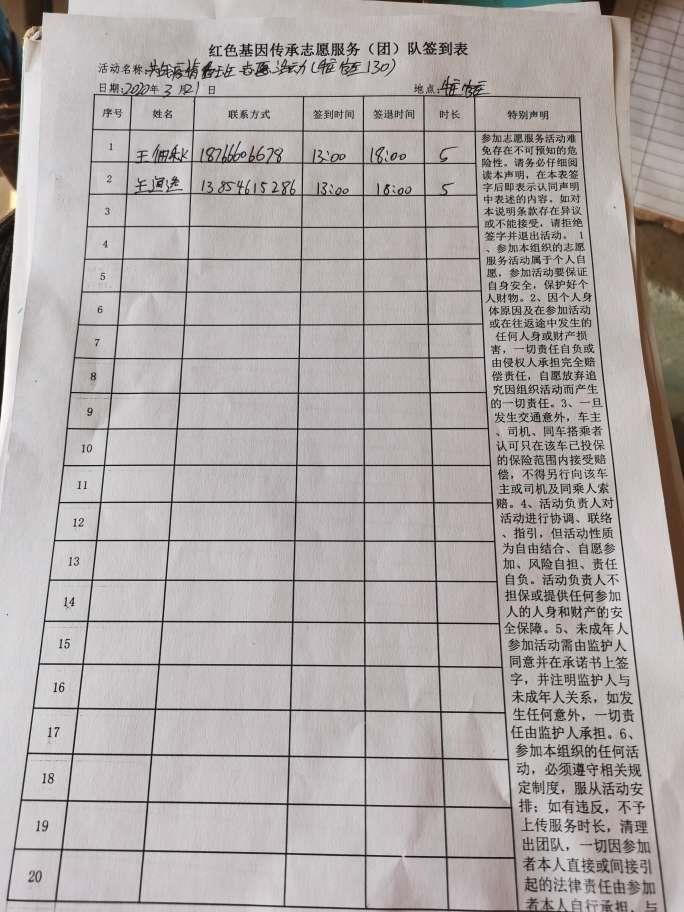 红色基因传承志愿服务（团）队签到表
活动名称:
日期:2020年3月21日 地点:
序号 姓名 联系方式 签到时间 签退时间 时长 特别声明
1 王 18766606678 13:00 18:00 5
2 王 13854615286 13:00 18:00 5
3
4
5
6
7
8
9
10
11
12
13
14
15
16
17
18
19
20
参加志愿服务活动难
免存在不可预知的危
险性。请务必仔细阅
读本声明，在本表签
字后即表示认同声明
中表述的内容。如对
本说明条款存在异议
或不能接受，请拒绝
签字并退出活动。 1
、参加本组织的志愿
服务活动属于个人自
愿，参加活动要保证
自身安全，保护好个
人财物。2、因个人身
体原因及在参加活动
或在往返途中发生的
任何人身或财产损
害，一切责任自负或
由侵权人承担完全赔
偿责任，自愿放弃追
究因组织活动而产生
的一切责任。3、一旦
发生交通意外，车主
、司机、同车搭乘者
认可只在该车已投保
的保险范围内接受赔
偿，不得另行向该车
主或司机及同乘人索
赔。4、活动负责人对
活动进行协调、联络
、指引，但活动性质
为自由结合、自愿参
加、风险自担、责任
自负。活动负责人不
担保或提供任何参加
人的人身和财产的安
全保障。5、未成年人
参加活动需由监护人
同意并在承诺书上签
字，并注明监护人与
未成年人关系，如发
生任何意外，一切责
任由监护人承担。6、
参加本组织的任何活
动，必须遵守相关规
定制度，服从活动安
排；如有违反，不予
上传服务时长，清理
出团队，一切因参加
者本人直接或间接引
起的法律责任由参加
者本人自行承担，与